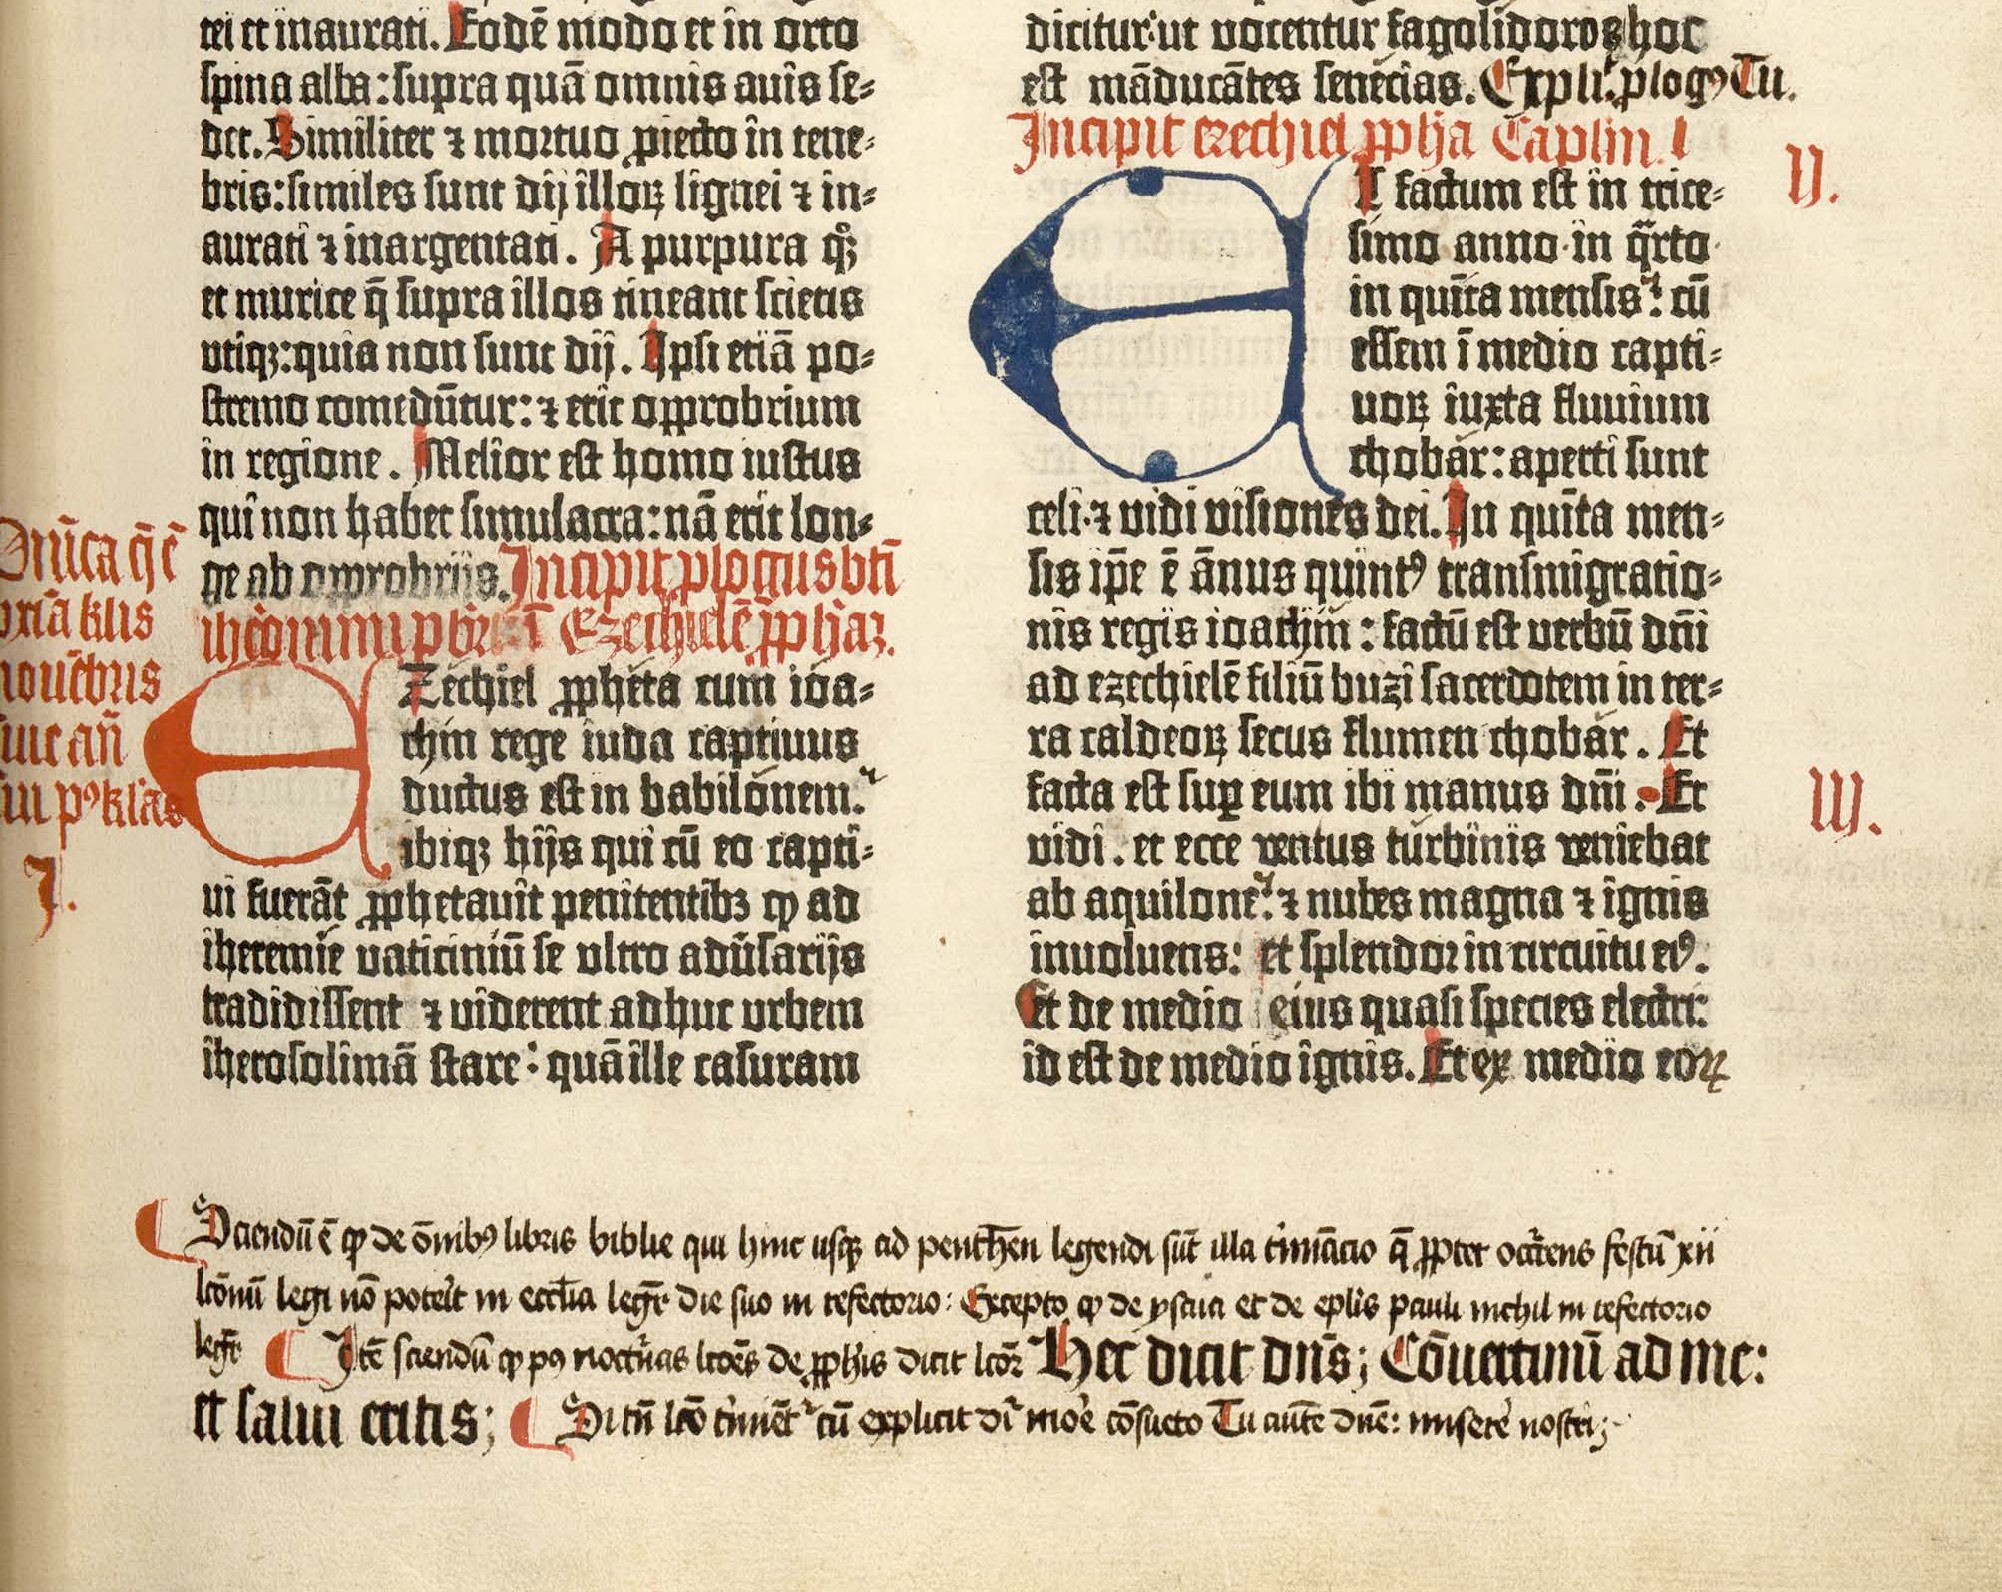 tei et inaurati. Eodē modo et in orto
spina alba: supra quā omnis auis se-
det. Similiter ⁊ mortuo ꝓiecto in tene-
bris: similes sunt dij illoꝝ lignei ⁊ in-
aurati ⁊ inargentati. A purpura qͦꝫ
et murice q̄ supra illos tineant scietis
utiqꝫ: quia non sunt dij. Ipsi etiā po-
stremo comedūtur: ⁊ erit opprobrium
in regione. Melior est homo iustus
qui non habet simulacra: nā erit lon-
ge ab opprobrijs. Incipit ꝓlogus bti
ihe͂ommi p̄bri ī Ezechielē ꝓphaꝫ.
Dn̄ica
klis
nouēbris
I.
EZechiel ꝓpheta cum ioa-
chim rege iuda captiuus
ductus est in babilonem.
ibiqꝫ hijs qui cū eo capti-
ui fuerāt ꝓphetauit penitentibꝫ ꝙ ad
iheremie uaticiniū se ultro adūsarijs
tradidissent ⁊ uiderent adhuc urbem
iherosolimā stare: quā ille casuram
dicitur: ut uocentur fagolidoroꝫ hoc
est māducātes senecias. Explīt ꝓlogꝰ Tu.
Incipit ezechiel ꝓpha Caplm. I
II.
ET factum est in trice-
simo anno in q̄rto
in quīta mensis: cū
essem ī medio capti-
uoꝝ iuxta fluuium
chobar: aperti sunt
celi ⁊ uidi uisiones dei. In quīta men-
sis ip̄e ē ānus quintꝰ transmigratio-
nis regis ioachim: factū est uerbū dn̄i
ad ezechielē filiū buzi sacerdotem in ter-
ra caldeoꝝ secus flumen chobar. Et
facta est suꝑ eum ibi manus dn̄i. Et
III.
uidi. et ecce uentus turbinis ueniebat
ab aquilone: ⁊ nubes magna ⁊ ignis
inuoluens: et splendor in circuitu eiꝰ.
Et de medio eius quasi species electri:
id est de medio ignis. Et ex medio eoꝝ
Sciendū ē ꝙ de ōnibꝰ libris biblie qui hinc usqꝫ ad penthen legendi sūt illa t̓mīacio q̄ ꝓpter occr̄rens festū xii
lcōnū legi nō poterit in eccl̄ia leget̄ die suo in refectorio: Excepto ꝙ de ysaia et de epl̄is pauli nichil in refectorio
leget̄ Itē sciendū ꝙ pꝰ noctr̄nas lcōes de ꝓphis dicit lcōr Hec dicit dn̄s; Cōuertimī ad me:
et salui eritis; Si tn̄ lcō t̓miet̄ cū explicit dr̄ more cōsueto Tu autē dn̄e: miserē nostri;